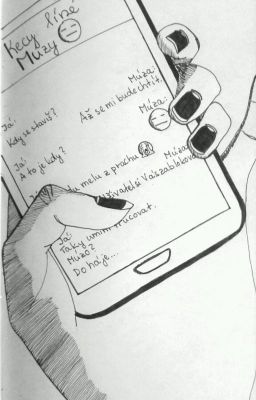 Kecy líné
Múzy
Já:
Kdy se stavíš?
Múza:
Až se mi bude chtít.
Já:
A to je kdy?
Múza:
melu z prachu
Múza
Uživatel Vás zablokoval
Já:
Taky umím trucovat.
Múzo?
Do háje...